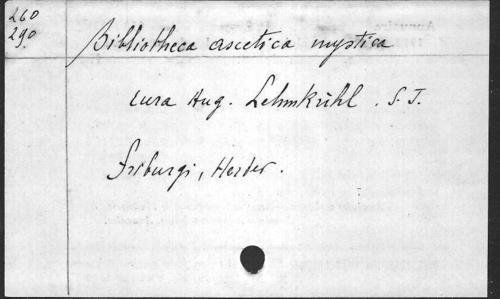 260
290
Bibliotheca ascetica mystica
cura Aug. Lehmkuhl. S. J.
Friburgi, Herder.